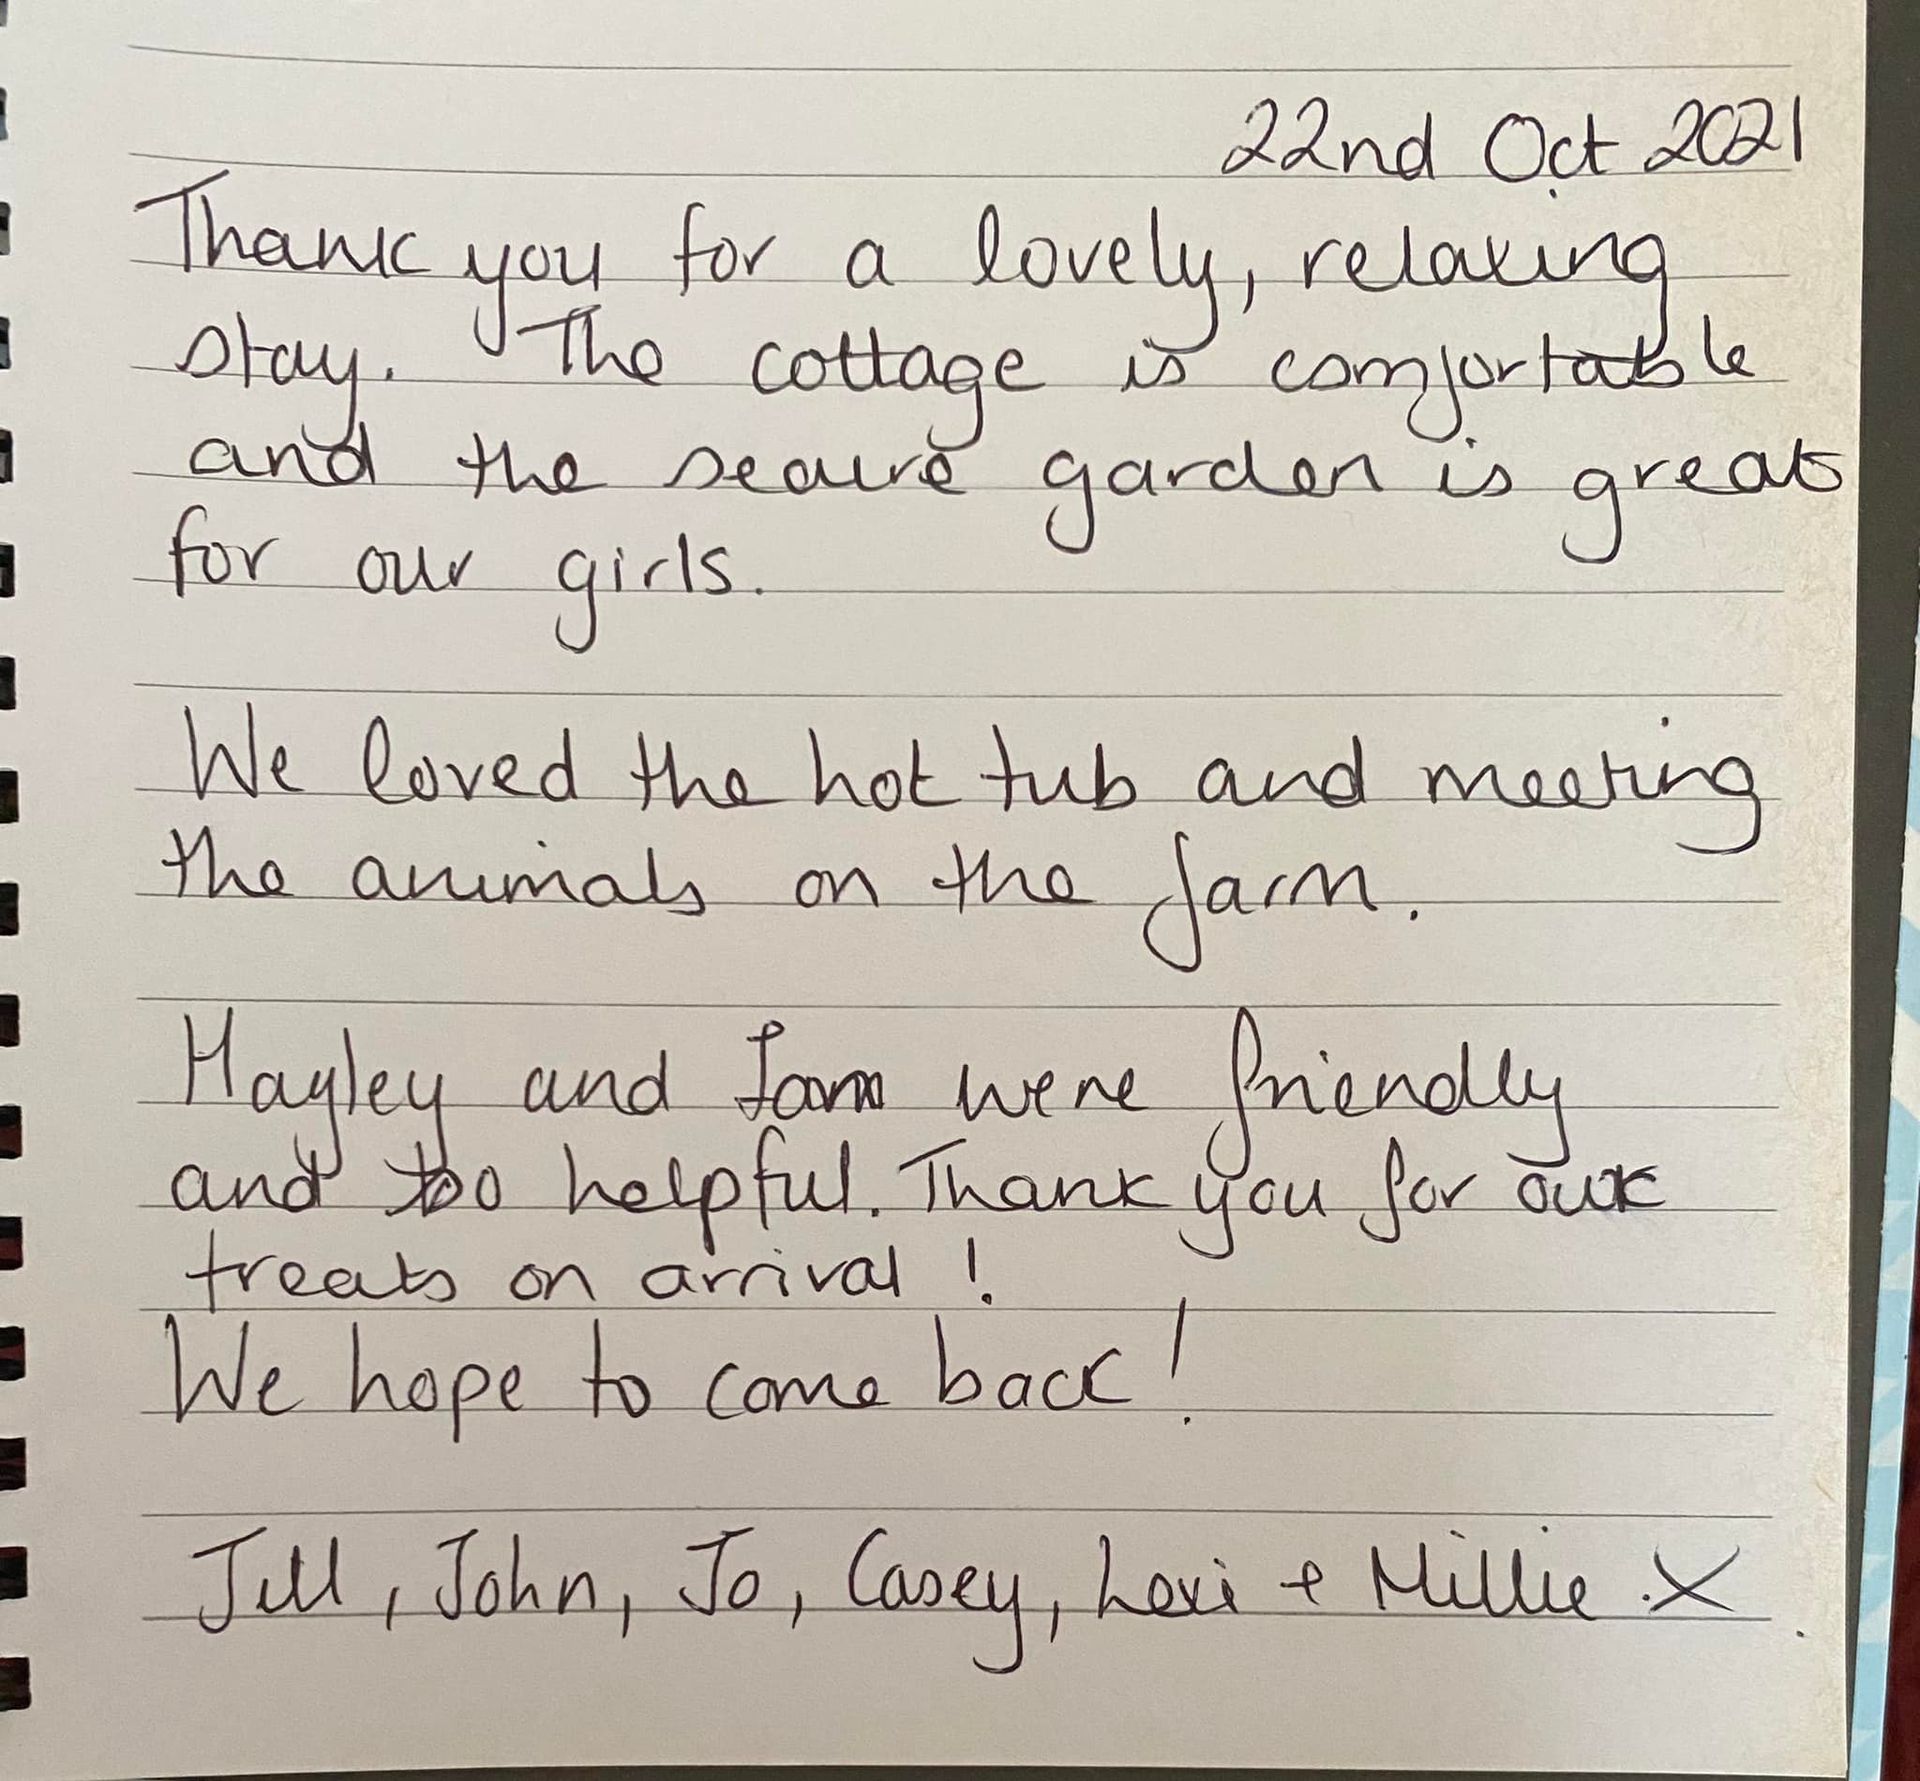 22nd Oct 2021
Thank you for a lovely, relaxing
stay. The cottage is comfortable
and the secure garden is great
for our girls.
We loved the hot tub and meeting
the animals on the farm.
Hayley and were friendly
and so helpful. Thank you for our
treats on arrival!
We hope to come back!
Jill, John, Jo, Casey, Lexi + Millie X